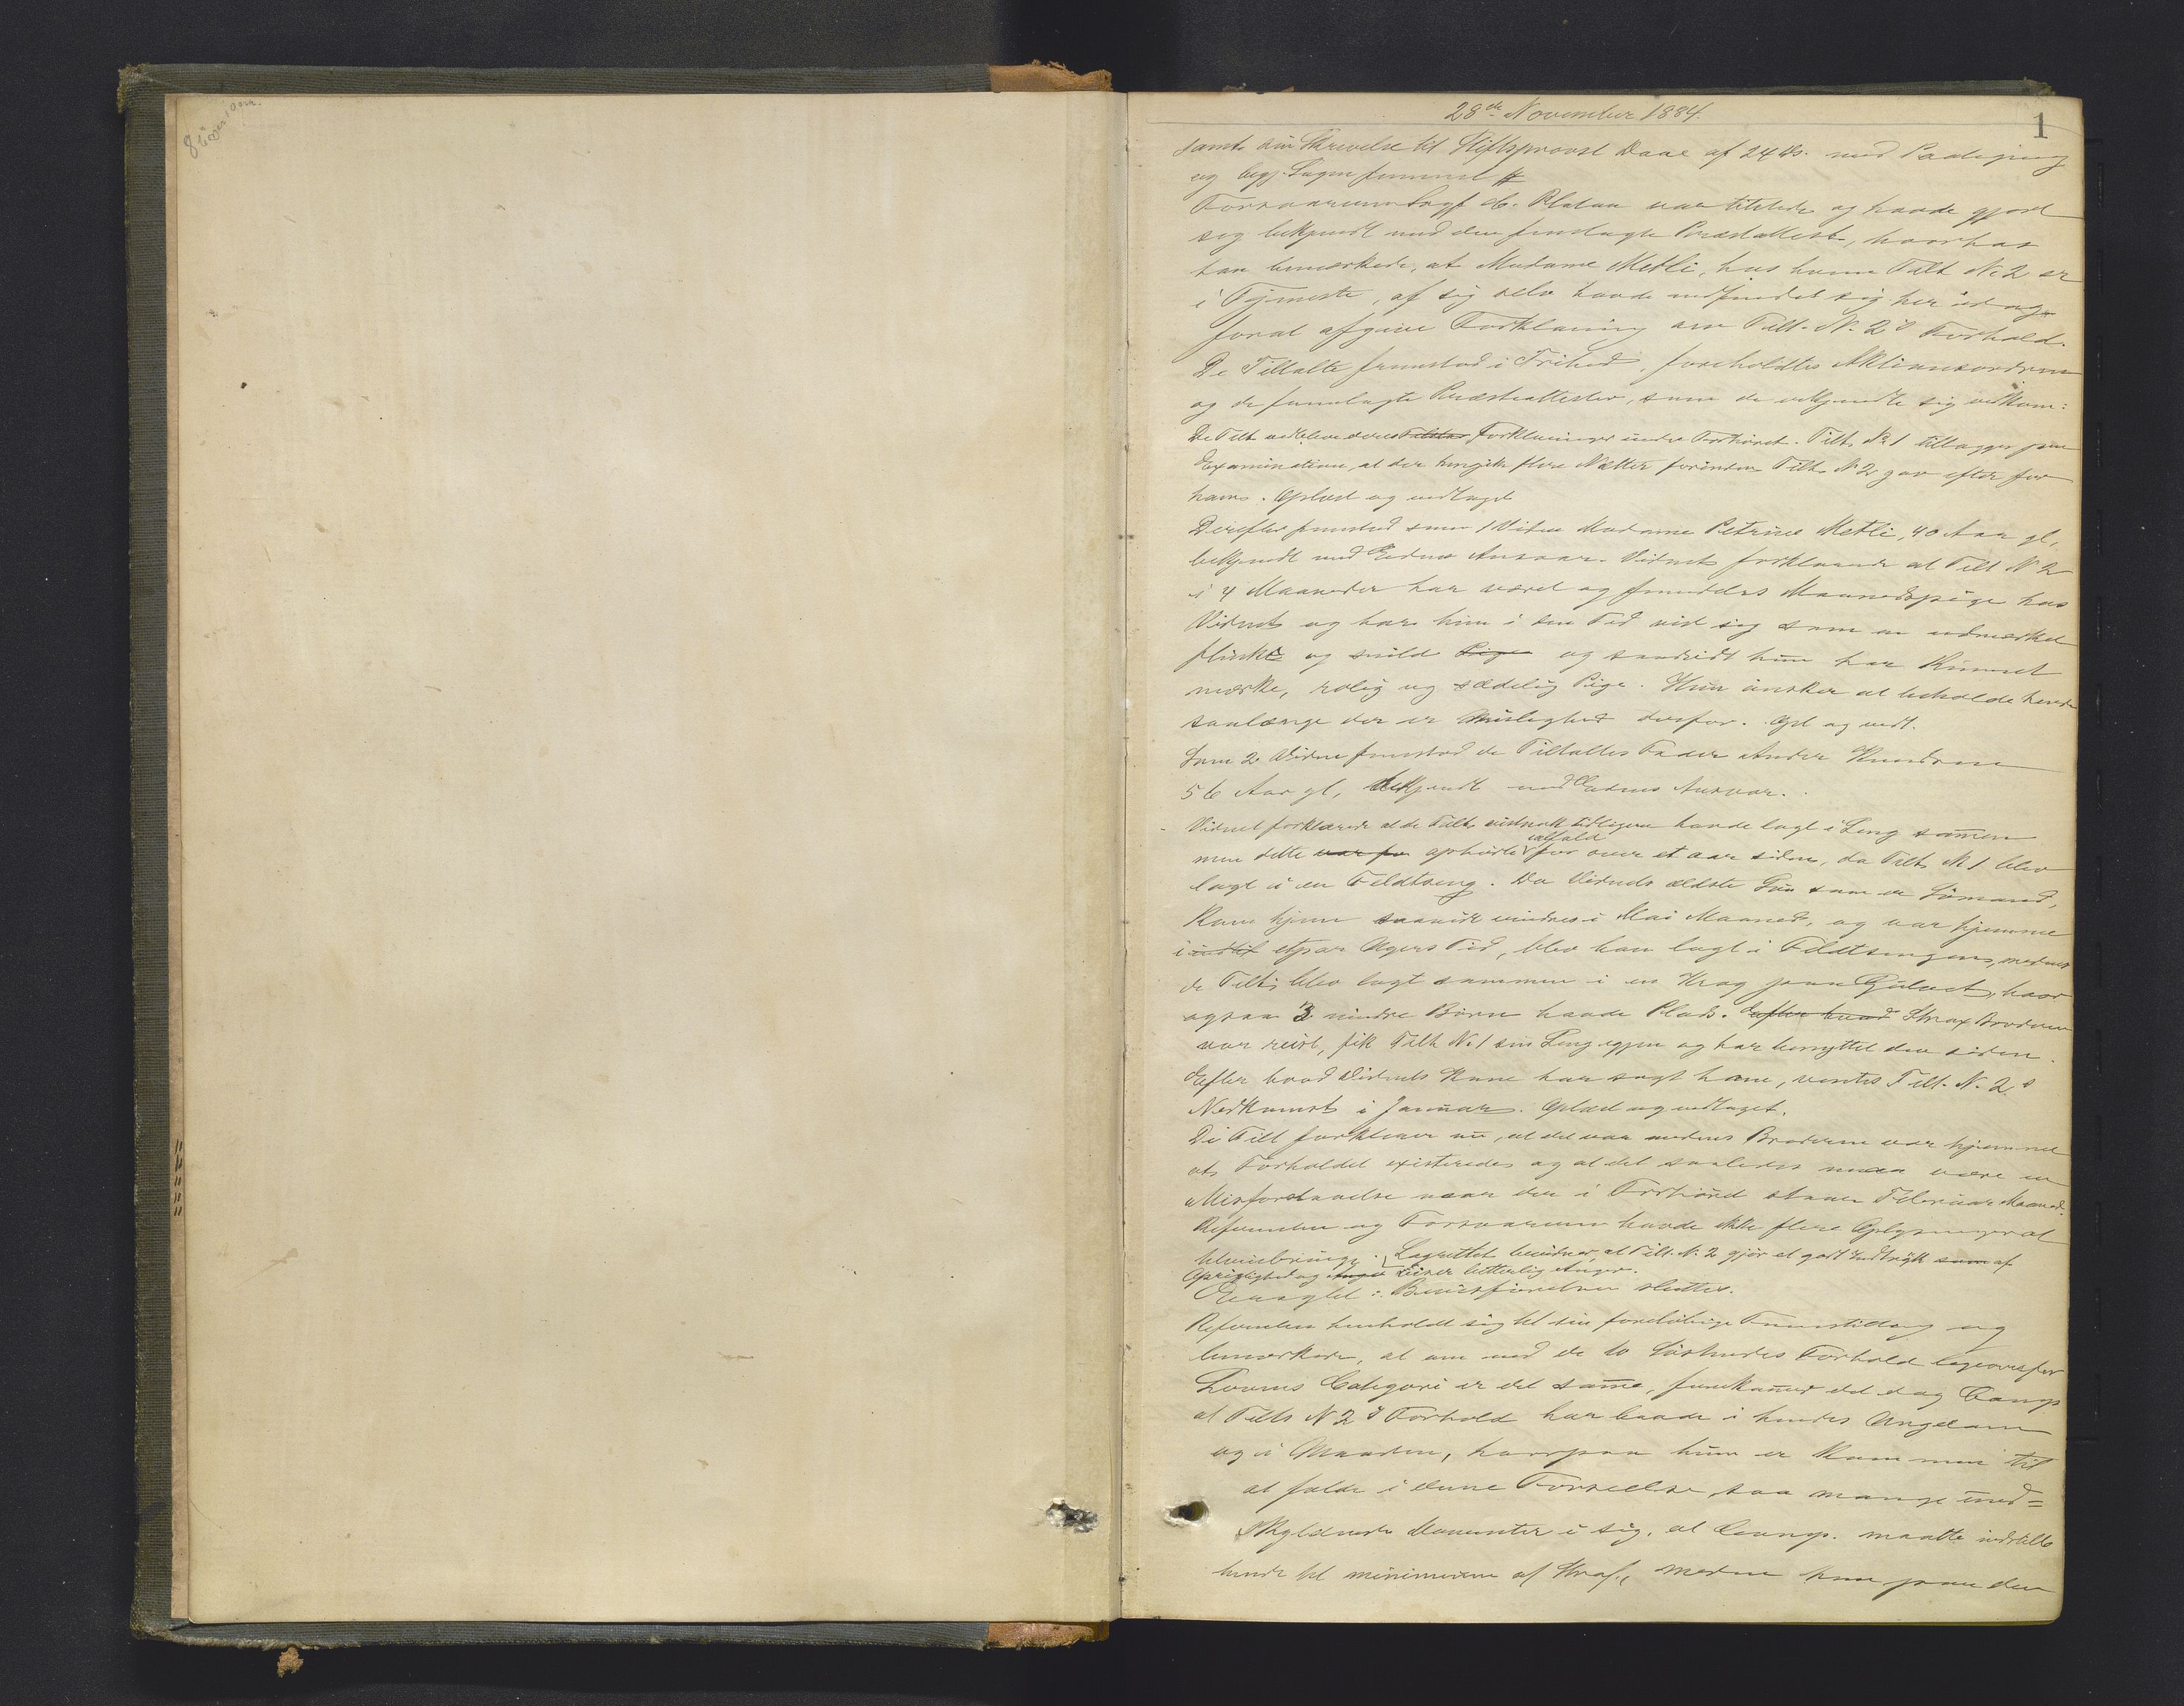 28de November 1884.
1
samt sin Skrivelse til Stiftsprovst Daae af 24 ds. med Paategning
og begj. Sagen fremmet
Forsvareren Sagf. Platou var tilstede og havde gjort
sig bekjendt med den fremlagte Præsteattest, hvorhos
han bemærkede, at Madame Metli, hos hvem Tilt No 2 er
i Tjeneste, af sig selv havde indfundet sig her idag
foral afgive Forklaring om Tilt. N. 2s Forhold.
De Tiltalte fremstod i Frihed, foreholdtes Aktionsordren
og de fremlagte Præsteattester, som de vedkjendte sig vedkom:
De Tilt vedbleve deres Forklaringer under Forhøret. Tilt. No 1 tillægger paa
Examination, at der hengik flere Nætter forinden Tilt. No 2 gav efter for
ham. Oplæst og vedtaget
Derefter fremstod som 1 Vidne Madame Petrine Metli, 40 Aar gl,
bekjendt med Edens Ansvar. Vidnet forklarede at Tilt N 2
i 4 Maaneder har været og fremdeles Maanedspige hos
Vidnet og har hun i den Tid vist sig som en udmærket
flink og snild Pige og saavidt hun har kunnet
mærke, rolig og sædelig Pige. Hun ønsker at beholde hende
saalænge der er Mulighed derfor. Opl og vedt.
Som 2 Vidne fremstod de Tiltaltes Fader Anders Knudsen
56 Aar gl, bekjendt med Edens Ansvar.
Vidnet forklarede at de Tilt. vistnok tidligere havde lagt i Seng sammen
ialfald
men dette var for ophørte for over et aar siden, da Tilt. N 1 blev
lagt i en Feldtseng. Da Vidnets ældste Søn som er Sømand,
kom hjem saavidt mindes i Mai Maaned, og var hjemme
i etpar Ugers Tid, blev han lagt i Feldtsengen, medens
de Tilt. blev lagt sammen i en Krog paa Gulvet, hvor
ogsaa 3 mindre Børn havde Plads. Efter hvad Strax Broderen
var reist, fik Tilt No 1 sin Seng igjen og har benyttet den siden.
Efter hvad Vidnets Kone har sagt ham, ventes Tilt. N. 2s
Nedkomst i Januar. Oplæst og vedtaget.
De Tilt forklarer nu, at det var medens Broderen var hjemme
at Forholdet existerede og at det saaledes maa være en
Misforstaaelse naar der i Forhøret staaer Februar Maaned.
Referenten og Forsvareren havde ikke flere Oplysninger at
tilveiebringe. Lagrettet bevidner, at Tilt. N. 2 gjør et godt Indtryk som af
Oprigtighed og Anger.
Eragtet: Bevisførelsen sluttes.
Referenten henholdt sig til sin foreløbige Fremstilling og
bemærkede, at om end de to Søskendes Forhold ligeoverfor
Lovens Categori er det samme, forekommer det dog Comp
at Tilts N 2s Forhold har baade i hendes Ungdom
og i Maaden, hvorpaa hun er kommen til
at falde i denne Forseelse, saa mange und=
skyldende Momenter i sig, at Comp. maatte indstille
hende til minimum af Straf, medens han paa den